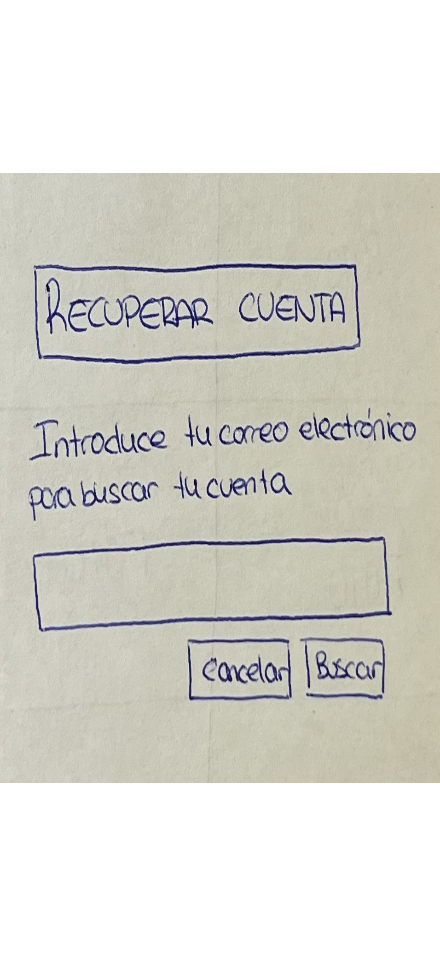 RECUPERAR CUENTA
Introduce tu correo electrónico
para buscar tu cuenta
Cancelar Buscar